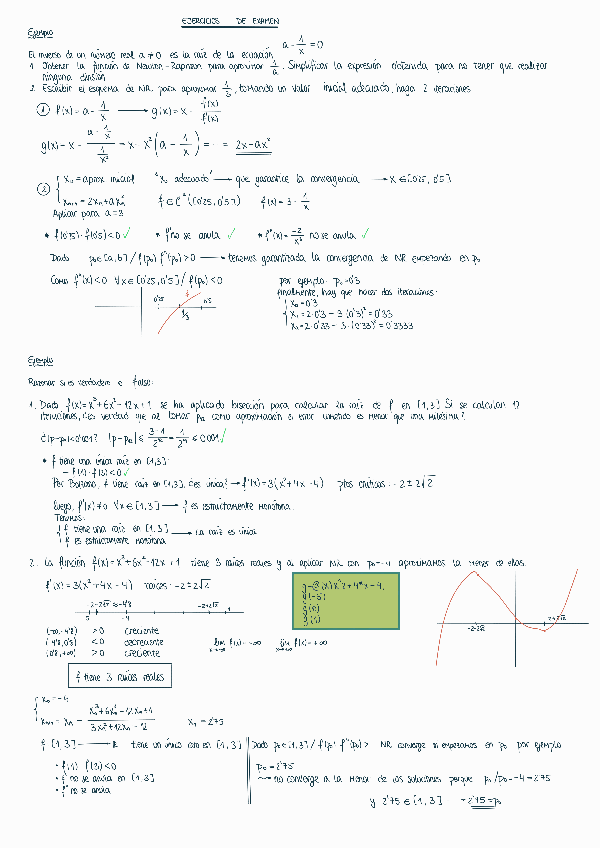 EJERCICIOS DE EXAMEN
Ejemplo
El inverso de un número real a ≠ 0 es la raíz de la ecuación a - 1/x = 0
1. Obtener la función de Newton-Raphson para aproximar 1/a. Simplificar la expresión obtenida para no tener que realizar
ninguna división
2. Escribir el esquema de NR para aproximar 1/3, tomando un valor inicial adecuado, haga 2 iteraciones
① f(x) = a - 1/x → g(x) = x - f(x)/f'(x)
g(x) = x - (a - 1/x)/(1/x²) = x - x²(a - 1/x) = ... = 2x - ax²
② x₀ = aprox inicial "x₀ adecuado" → que garantice la convergencia → x ∈ [0'25, 0'5]
xₙ₊₁ = 2xₙ + axₙ² f ∈ C²([0'25, 0'5]) f(x) = 3 - 1/x
Aplicar para a = 3
• f(0'25) · f(0'5) < 0 ✓ * f' no se anula ✓ * f''(x) = -2/x³ no se anula ✓
Dado p₀ ∈ [a, b] / f(p₀) f''(p₀) > 0 → tenemos garantizada la convergencia de NR empezando en p₀
Como f''(x) < 0 ∀x ∈ [0'25, 0'5] / f(p₀) < 0 por ejemplo p₀ = 0'3
Finalmente, hay que hacer dos iteraciones:
0'25 1/3 0'5
x₀ = 0'3
x₁ = 2·0'3 - 3·(0'3)² = 0'33
x₂ = 2·0'33 - 3·(0'33)² = 0'3333
Ejemplo
Razonar si es verdadero o falso:
1. Dado f(x) = x³ + 6x² - 12x + 1 se ha aplicado bisección para calcular la raíz de f en [1, 3] Si se calculan 12
iteraciones, ¿es verdad que al tomar p₁₂ como aproximación el error cometido es menor que una milésima?
¿|p - p₁₂| < 0'001? |p - p₁₂| ≤ (3-1)/2¹² = 1/2¹¹ ≤ 0'001 ✓
• f tiene una única raíz en [1, 3]:
- f(1) · f(3) < 0 ✓
Por Bolzano, f tiene raíz en [1, 3], ¿es única? → f'(x) = 3(x² + 4x - 4) ptos críticos: -2 ± 2√2
Luego, f'(x) ≠ 0 ∀x ∈ [1, 3] → f es estrictamente monótona.
Tenemos:
f tiene una raíz en [1, 3] → La raíz es única
f es estrictamente monótona
2. La función f(x) = x³ + 6x² - 12x + 1 tiene 3 raíces reales y al aplicar NR con p₀ = -4 aproximamos la menor de ellas.
f'(x) = 3(x² + 4x - 4) raíces: -2 ± 2√2
-2-2√2 ≈ -4'8 -2+2√2
-5 -4 1
(-∞, -4'8) > 0 creciente
(-4'8, 0'8) < 0 decreciente
(0'8, +∞) > 0 creciente
lim f(x) = -∞ lim f(x) = +∞
g(-5)
g(0)
g(1)
-2-2√2 -2+2√2
f tiene 3 raíces reales
x₀ = -4
xₙ₊₁ = xₙ - (xₙ³ + 6xₙ² - 12xₙ + 1)/(3xₙ² + 12xₙ - 12) x₁ = 2'75
f [1, 3] → ℝ tiene un único cero en [1, 3]
• f(1) · f(3) < 0
• f' no se anula en [1, 3]
• f'' no se anula
Dado p₀ ∈ [1, 3] / f(p₀) · f''(p₀) > NR converge si empezamos en p₀ por ejemplo
p₀ = 2'75
→ no converge a la menor de las soluciones porque p₁ / p₀ = -4 = 2'75
y 2'75 ∈ [1, 3] = 2'75 = p₀